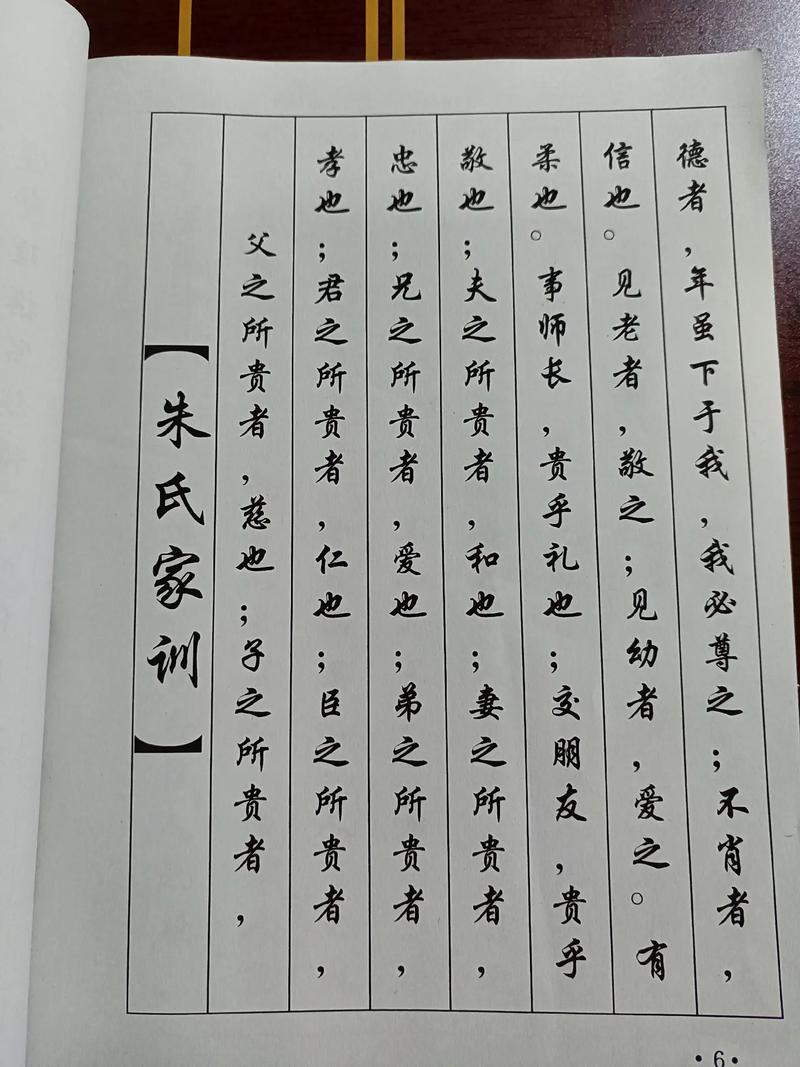 【朱氏家训】
父之所贵者，慈也；子之所贵者，
孝也；君之所贵者，仁也；臣之所贵者，
忠也；兄之所贵者，爱也；弟之所贵者，
敬也；夫之所贵者，和也；妻之所贵者，
柔也。事师长，贵乎礼也；交朋友，贵乎
信也。见老者，敬之；见幼者，爱之。有
德者，年虽下于我，我必尊之；不肖者，
·6·